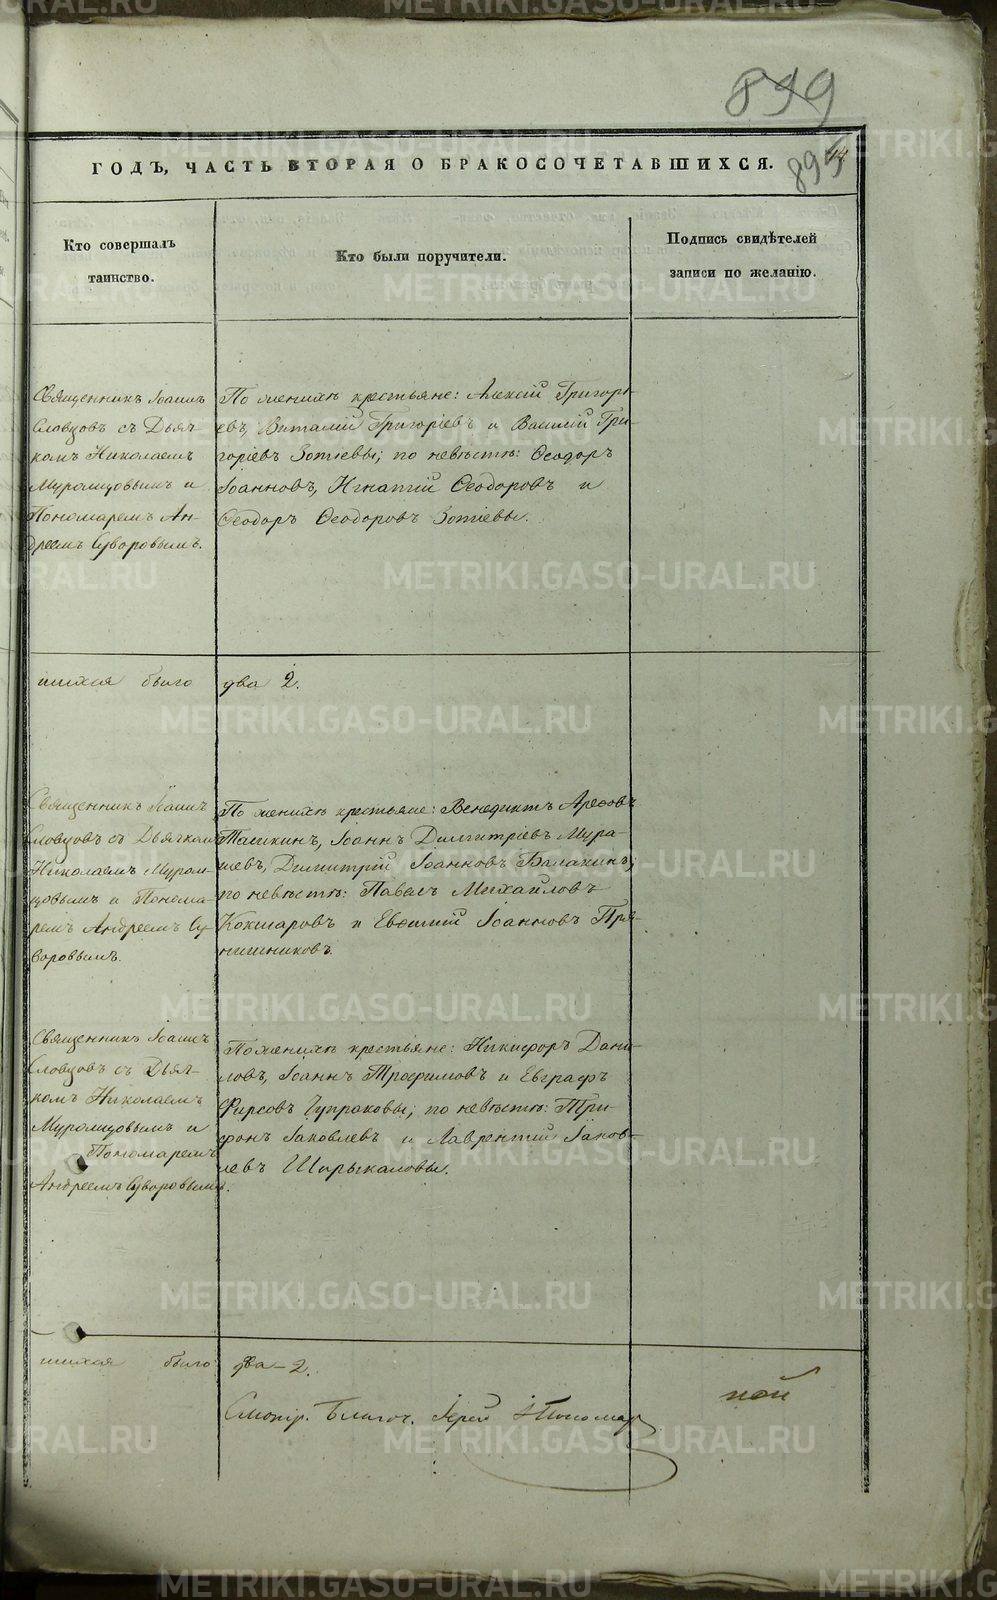 899
895
ГОДЪ, ЧАСТЬ ВТОРАЯ О БРАКОСОЧЕТАВШИХСЯ.
Кто совершалъ
таинство.
Кто были поручители.
Подпись свидѣтелей
записи по желанію.
Священникъ Іоаннъ
Словцовъ съ Дьяч-
комъ Николаемъ
Муромцовымъ и
Пономаремъ Ан-
дреемъ Суворовымъ.
По женихѣ крестьяне: Алексій Григорь-
евъ, Виталій Григоріевъ и Василій Гри-
горіевъ Зотіевы; по невѣстѣ: Ѳеодоръ
Іоанновъ, Игнатій Ѳеодоровъ и
Ѳеодоръ Ѳеодоровъ Зотіевы.
шихся было два 2.
Священникъ Іоаннъ
Словцовъ съ Дьячкомъ
Николаемъ Муром-
цовымъ и Понома-
ремъ Андреемъ Су-
воровымъ.
По женихѣ крестьяне: Венедиктъ Арефовъ
Ташкинъ, Іоаннъ Димитріевъ Мура-
шевъ, Димитрій Іоанновъ Балакинъ;
по невѣстѣ: Павелъ Михайловъ
Кокшаровъ и Евѳимій Іоанновъ Пря-
нишниковъ.
Священникъ Іоаннъ
Словцовъ съ Дьяч-
комъ Николаемъ
Муромцовымъ и
Пономаремъ
Андреемъ Суворовымъ.
По женихѣ крестьяне: Никифоръ Дани-
ловъ, Іоаннъ Трофимовъ и Евграфъ
Фирсовъ Чупраковы; по невѣстѣ: Три-
фонъ Іаковлевъ и Лаврентій Іаков-
левъ Шарыкаловы.
шихся было два–2.
Смотр. Благоч. Іерей Пономар
METRIKI.GASO-URAL.RU